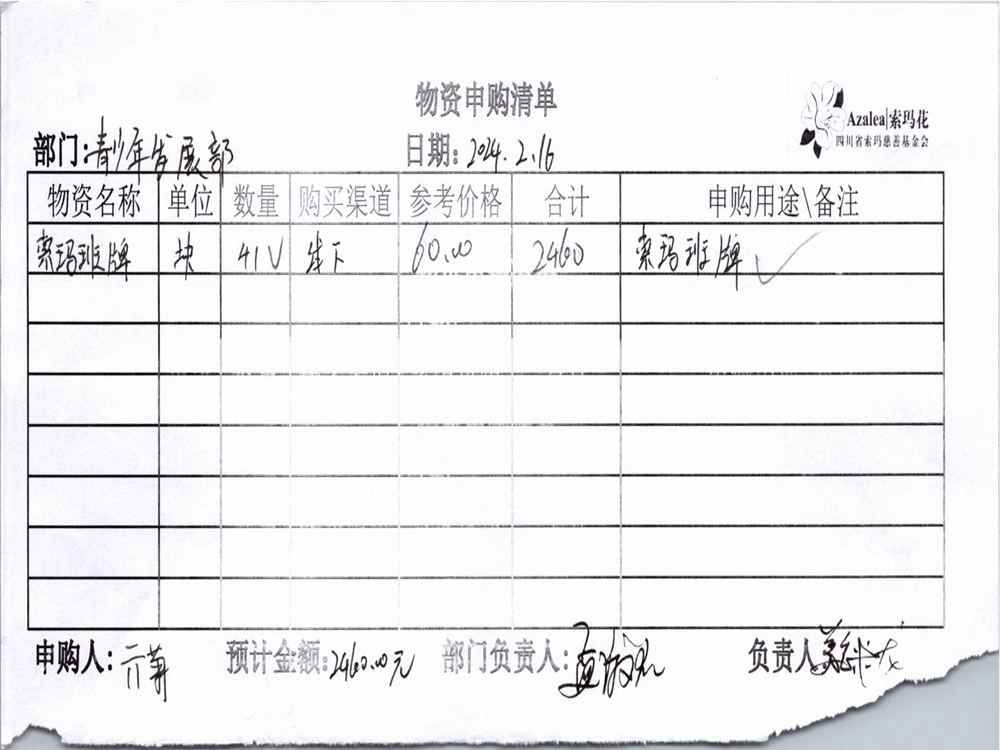 物资申购清单
Azalea|索玛花
四川省索玛慈善基金会
部门:青少年发展部 日期:2024.2.16
物资名称 单位 数量 购买渠道 参考价格 合计 申购用途\备注
索玛班牌 块 41 线下 60.00 2460 索玛班牌
申购人: 预计金额:2460.00元 部门负责人: 负责人